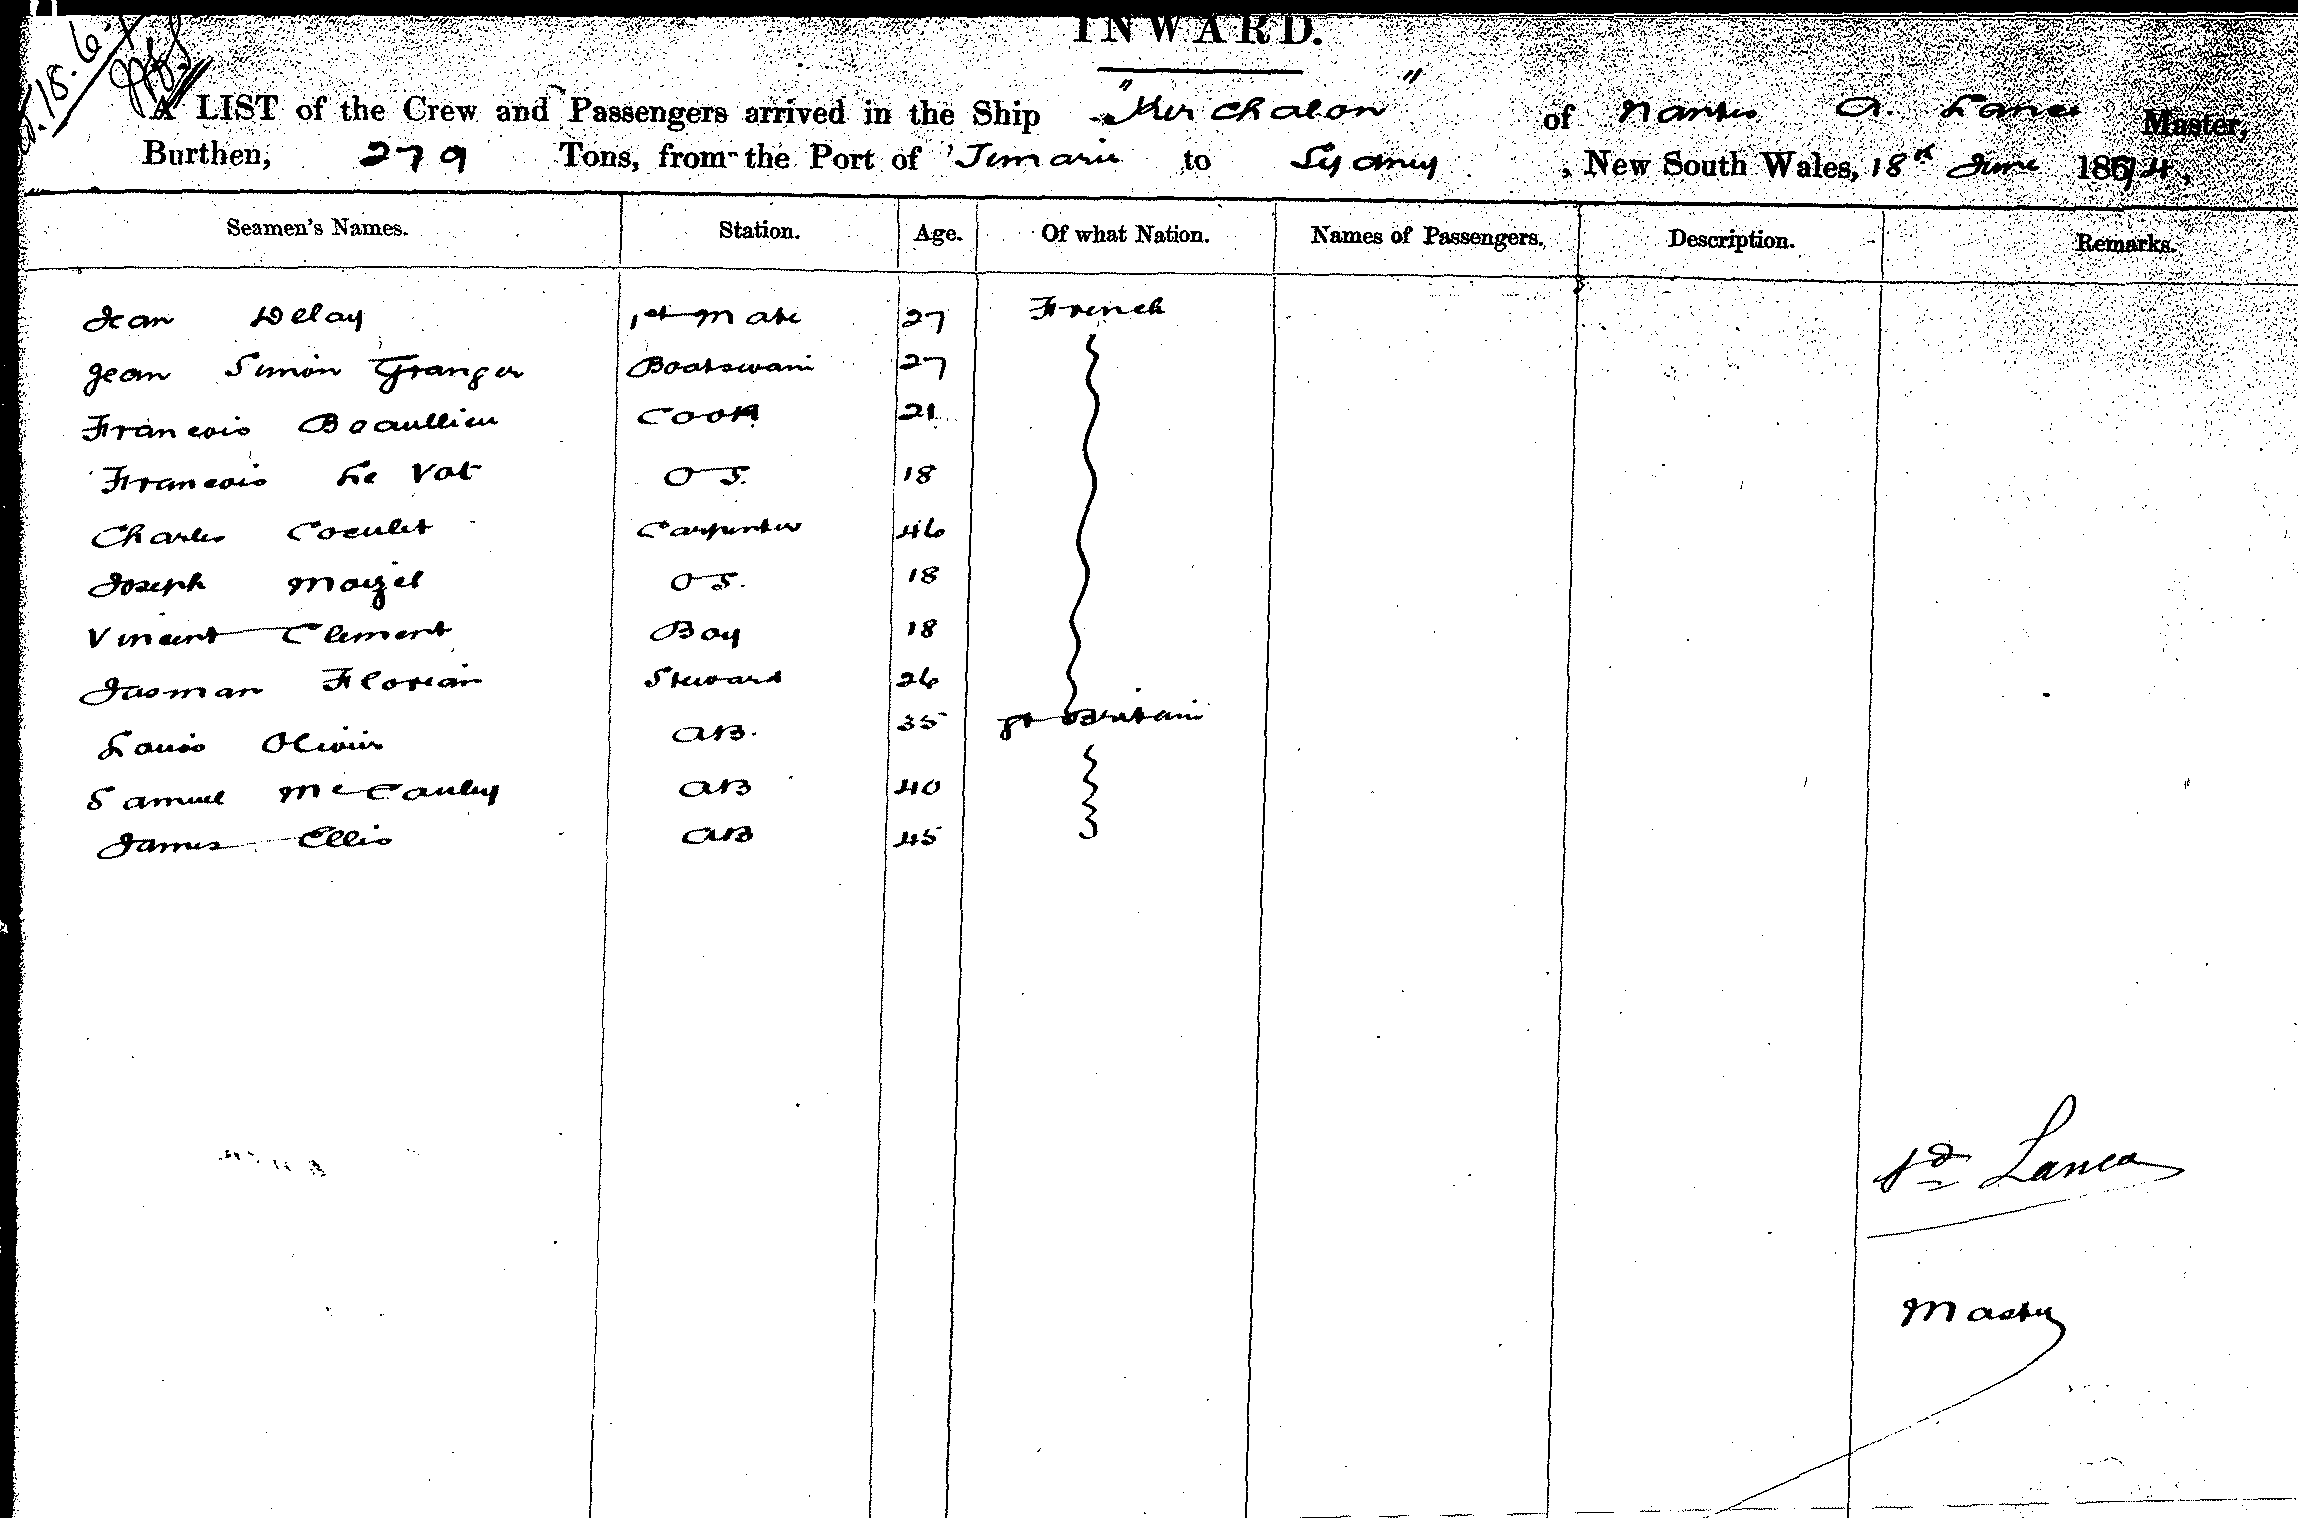 INWARD.
18.6.
A LIST of the Crew and Passengers arrived in the Ship "Ker Chalon" of Nantes A. Lanco Master,
Burthen, 279 Tons, from the Port of to Sydney, New South Wales, 18th June 1894.
Seamen's Names. Station. Age. Of what Nation. Names of Passengers. Description. Remarks.
Jean Delay 1st Mate 27 French
Jean Simon Granger Boatswain 27
Francois Beaullieu Cook 21
Francois Le Vot O S. 18
Charles Coculet Carpenter 46
Joseph Moizel O S. 18
Vincent Clement Boy 18
Jasman Florian Steward 26
Louis Olivier AB. 35 Gt Britain
Samuel McCauley AB 40
James Ellis AB 45
Sd Lanco
Master